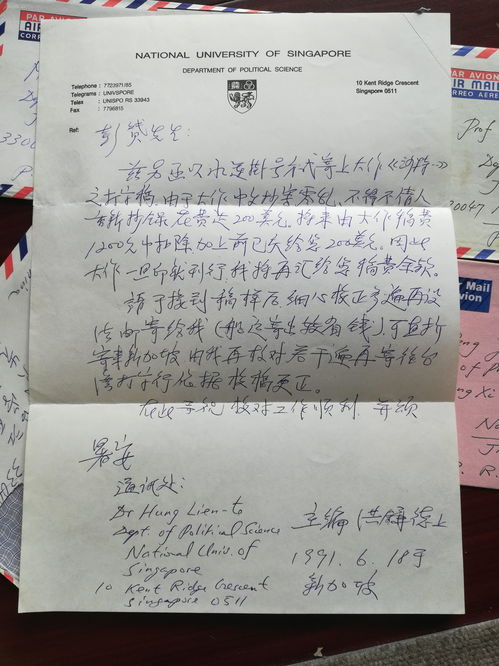 NATIONAL UNIVERSITY OF SINGAPORE
DEPARTMENT OF POLITICAL SCIENCE
Telephone : 7723971/85
Telegrams : UNIVSPORE
Telex : UNISPO RS 33943
Fax : 7796815
10 Kent Ridge Crescent
Singapore 0511
Ref:
彭贤先生:
兹另函以水运挂号方式寄上大作
之打字稿。由于大作中文抄写零乱,不得不请人
重新抄录花费达200美元。将来由大作稿费
1200元中扣除,加上前已先给您200美元。因此
大作一旦印就刊行我将再汇给您稿费余额。
请于接到稿样后细心校正多遍再设
法邮寄给我(
寄来新加坡由我再校对若干遍再寄往台
湾打字行依据校稿更正。
在此 祝校对工作顺利 并颂
暑安
通讯处:
Dr Hung Lien-te
Dept. of Political Science
National Univ. of
Singapore
10 Kent Ridge Crescent
Singapore 0511
主编 洪镰德上
1991.6.18于
新加坡
PAR AVION
AIR MAIL
CORREO AEREO
PAR AVION
AIR MAIL
CORREO AEREO
Prof
Air Mail